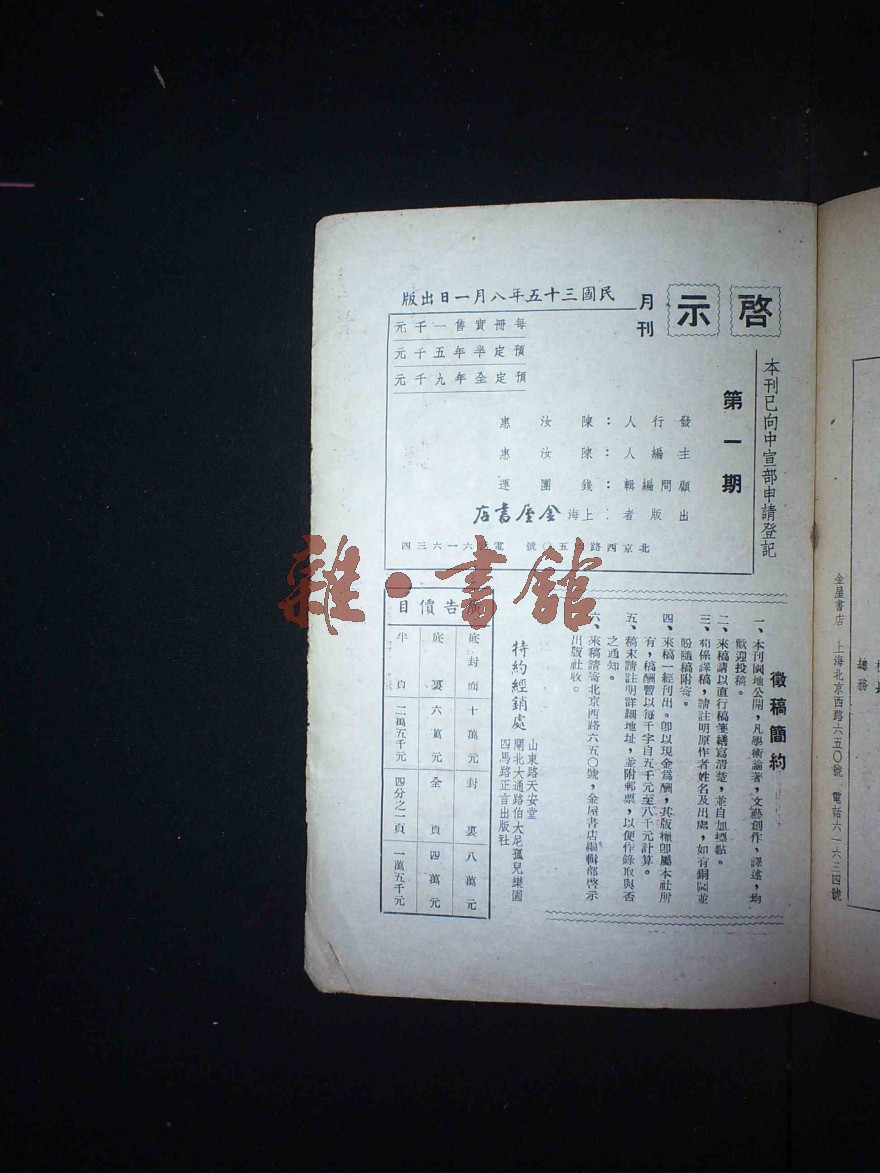 啓示
月刊
民國三十五年八月一日出版
第一期
本刊已向中宣部申請登記
每冊實售一千元
預定半年五千元
預定全年九千元
發行人：陳汝惠
主編人：陳汝惠
顧問編輯：錢團運
出版者：上海金屋書店
北京西路六五〇號 電話六一六三四
徵稿簡約
一、本刊園地公開，凡學術論著，文藝創作，譯述，均
歡迎投稿。
二、來稿請以直行稿箋繕寫清楚，並自加標點。
三、茍係譯稿，請註明原作者姓名及出處，如有銅圖並
盼隨稿附寄。
四、來稿一經刊出。卽以現金爲酬，其版權卽屬本社所
有，稿酬暫以每千字自五千元至八千元計算。
五、稿末請註明詳細地址，並附郵票，以便作錄取與否
之通知。
六、來稿請寄北京西路六五〇號，金屋書店編輯部啓示
出版社收。
特約經銷處
山東路天安堂
閘北大通路伯大尼孤兒樂園
四馬路正言出版社
廣告價目
底封面 十萬元 封裏 八萬元
底裏 六萬元 全頁 四萬元
半頁 二萬五千元 四分之一頁 一萬五千元
雜·書館
總務
金屋書店 上海北京西路六五〇號 電話六一六三四號